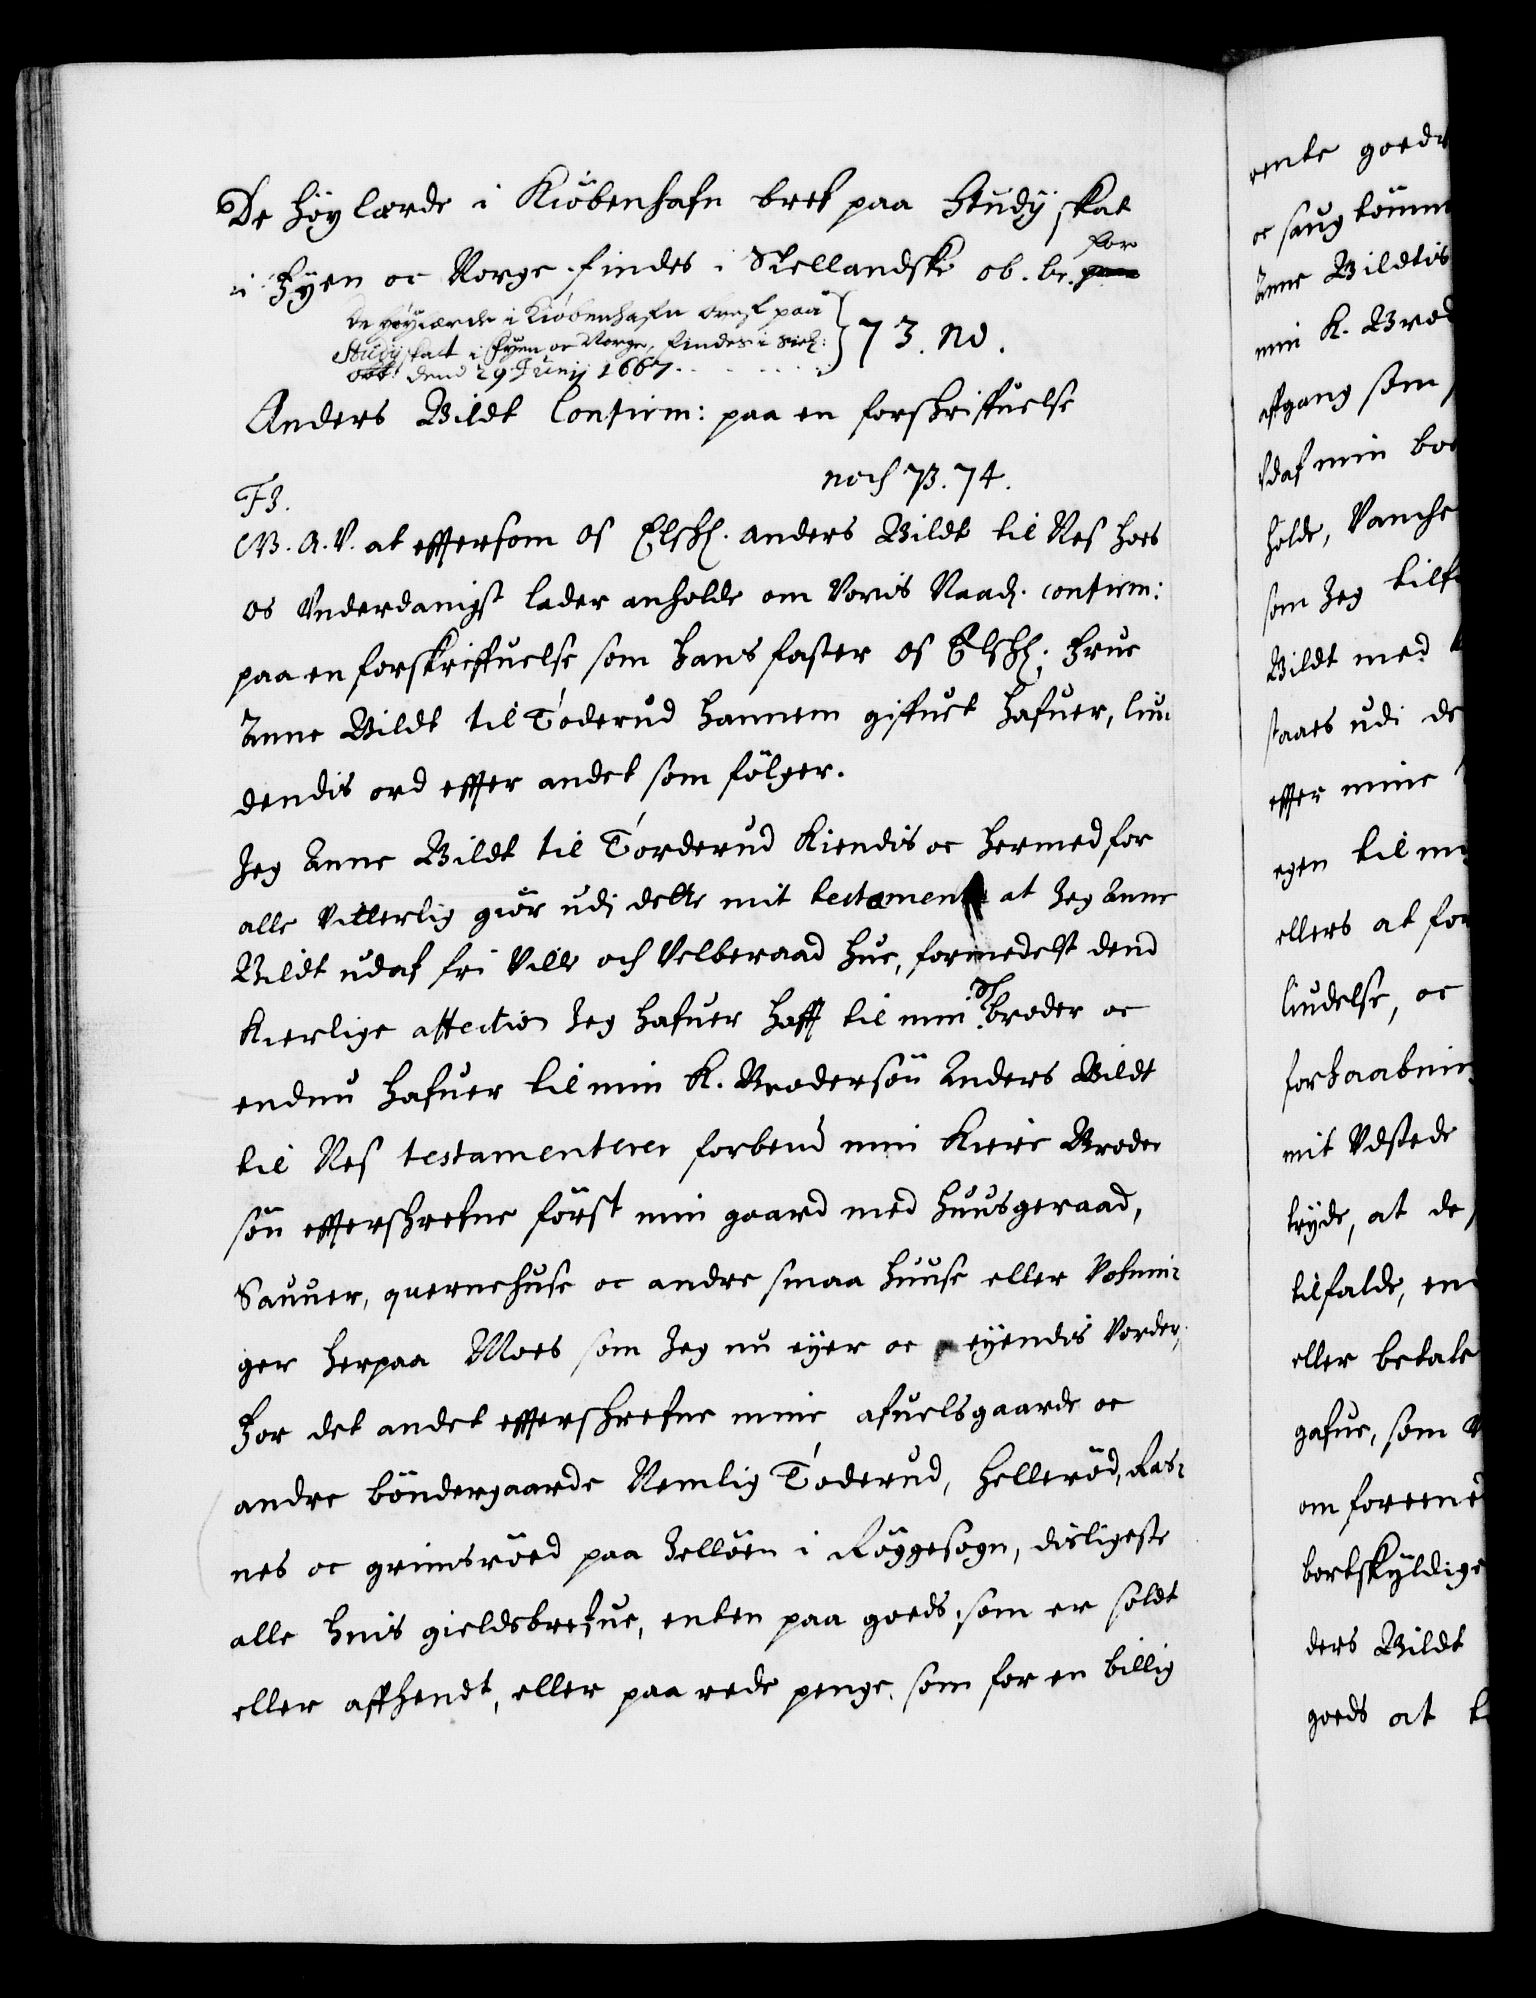 De höylærde i Kiöbenhafn bref paa Studij skat
i Fyen oc Norge findes i Siellandske ob. br. for
De höylærde i Kiöbenhafn breff paa
Studij skatt i Fyen oc Norge, findes i Siel:
dend 29 Junij 1667.
73. No.
Anders Bildt Confirm: paa en forskriffuelse
noch 73. 74.
F3.
G. A. V. at effersom os Elskl. Anders Bildt til Nes hoes
os Underdanigst lader anholde om Voris Naad. confirm:
paa en forskriffuelse som hans faster os Elskl: Frue
Anne Bildt til Töderud hannem giffuet hafuer, liu
dendis ord effter andet som fölger.
Jeg Anne Bildt til Torderud Kiendis oc hermed for
alle Vitterlig giör udi dette mit testament at Jeg Anne
Bildt udaf fri Ville och Velberaad hue, formedelst dend
Kierlige affection Jeg hafuer hafft til min S. broder oc
endnu hafuer til min K. Brodersön Anders Bildt
til Nes testamenterer forbend min Kiere Broder
sön effterschrefne först min gaard med huusgeraad,
Sauuer, quernehuse oc andre smaa huuse eller Vohnin
ger herpaa Moes som Jeg nu eyer oc eyendis Vorder,
For det andet effterschrefne mine afuelsgaarde oc
andre böndergaarde Nemlig Töderud, Helleröd, Ras
nes oc grimsröed paa Jellöen i Röggesogn, disligeste
alle huis gieldsbrefue, enten paa goeds som er soldt
eller affhendt, eller paa rede penge, som for en billig
rente goeds
oc saug tömme
Anne Bildtis
min K. Brod
affgang som
udaf min bo
holde, Vanhe
som Jeg tilf
Bildt med
staaes udi de
effter mine
egen til
ellers at for
liudelse, oc
forhaabnin
mit Udstede
tryde, at de
tilfalde, en
eller betale
gafue, som
om foreene
bortskyldige
ders Bildt
goeds at